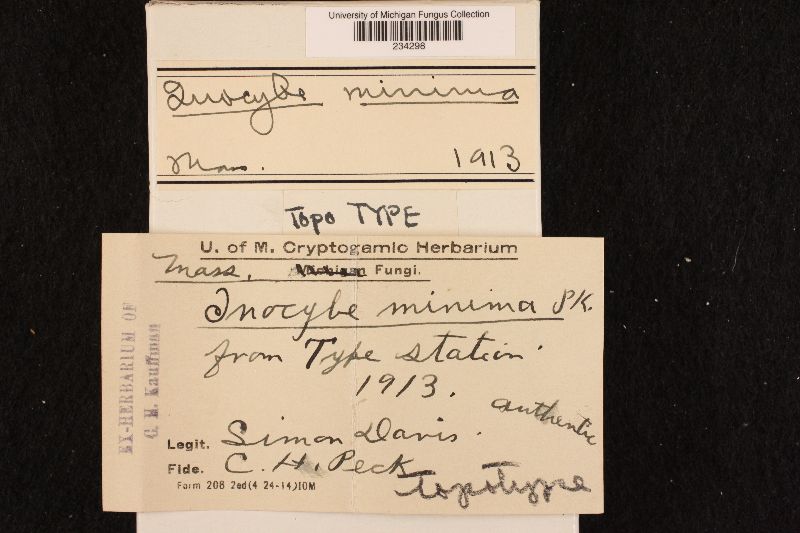 University of Michigan Fungus Collection
234298
Inocybe minima
Mass. 1913
Topo TYPE
U. of M. Cryptogamic Herbarium
Mass. Michigan Fungi.
Inocybe minima Pk.
from Type station.
1913.
authentic
Legit. Simon Davis.
Fide. C. H. Peck
Topotype
Form 208 2ed(4 24-14)10M
EX-HERBARIUM OF
C. H. Kauffman